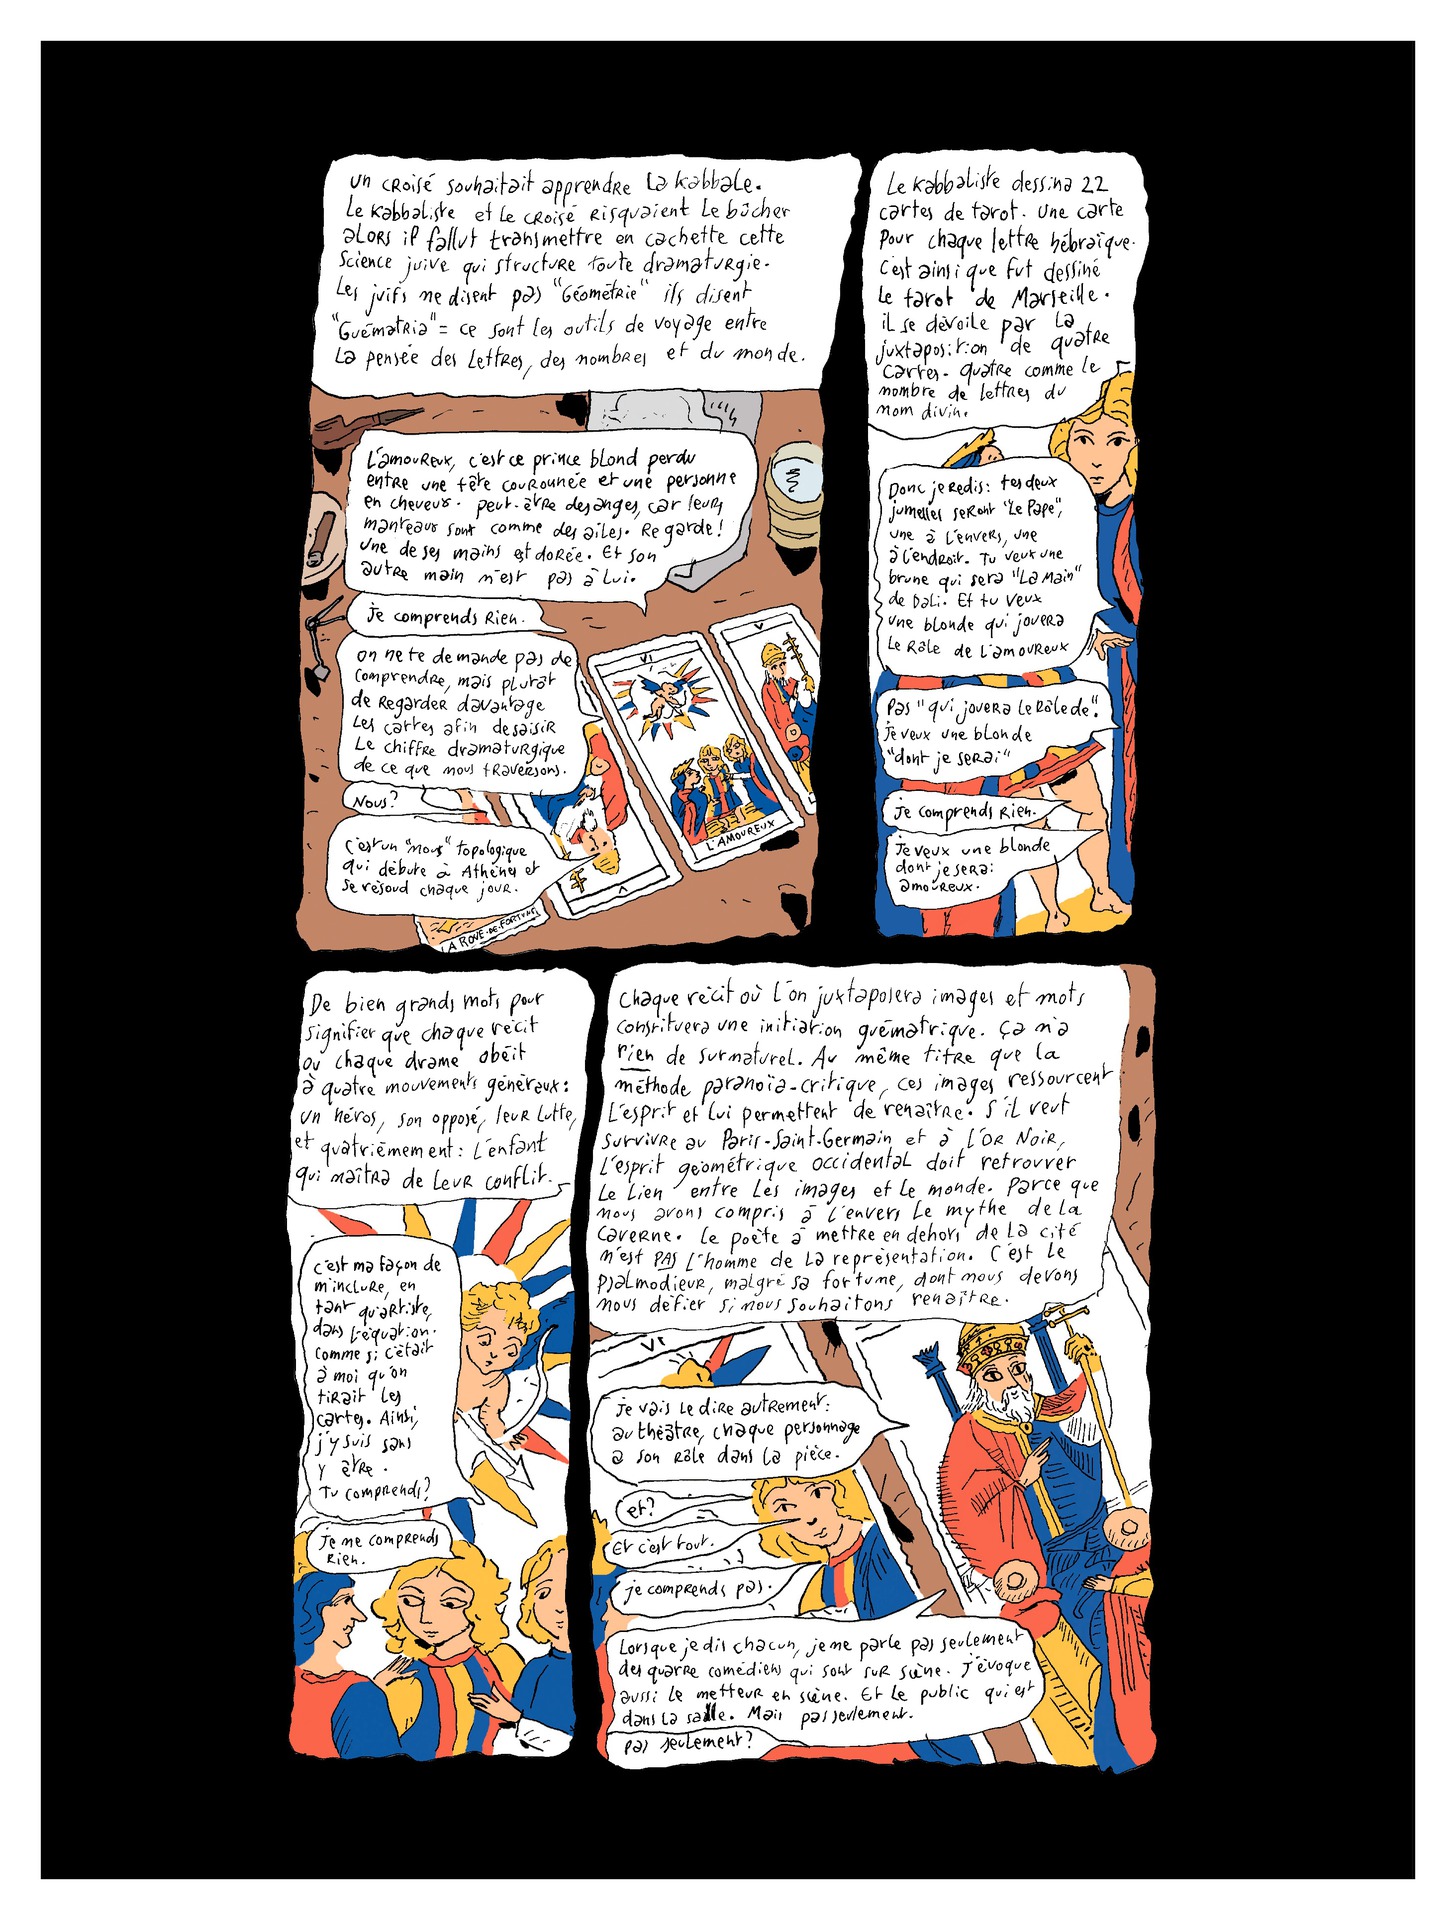 un croisé souhaitait apprendre la Kabbale.
Le Kabbaliste et le croisé risquaient le bûcher
alors il fallut transmettre en cachette cette
science juive qui structure toute dramaturgie.
Les juifs ne disent pas "Géométrie" ils disent
"Guématria" = ce sont les outils de voyage entre
la pensée des lettres, des nombres et du monde.
L'amoureux, c'est ce prince blond perdu
entre une tête couronnée et une personne
en cheveux. peut-être des anges, car leurs
manteaux sont comme des ailes. Regarde!
une de ses mains est dorée. Et son
autre main n'est pas à lui.
je comprends rien.
on ne te demande pas de
comprendre, mais plutôt
de regarder davantage
les cartes afin de saisir
le chiffre dramaturgique
de ce que nous traversons.
Nous?
c'est un "nous" topologique
qui débute à Athènes et
se résoud chaque jour.
VI
L'AMOUREUX
V
V
LA ROUE-DE-FORTUNE
Le Kabbaliste dessina 22
cartes de tarot. une carte
pour chaque lettre hébraïque.
C'est ainsi que fut dessiné
le tarot de Marseille.
il se dévoile par la
juxtaposition de quatre
cartes. quatre comme le
nombre de lettres du
nom divin.
Donc je redis: tes deux
jumelles seront "Le Pape",
une à l'envers, une
à l'endroit. Tu veux une
brune qui sera "La Main"
de Dali. Et tu veux
une blonde qui jouera
le rôle de l'amoureux
Pas "qui jouera le rôle de".
je veux une blonde
"dont je serai"
je comprends rien.
je veux une blonde
dont je serai:
amoureux.
De bien grands mots pour
signifier que chaque récit
ou chaque drame obéit
à quatre mouvements généraux:
un héros, son opposé, leur lutte,
et quatrièmement: l'enfant
qui naîtra de leur conflit.
c'est ma façon de
m'inclure, en
tant qu'artiste,
dans l'équation.
comme si c'était
à moi qu'on
tirait les
cartes. Ainsi,
j'y suis sans
y être.
Tu comprends?
je me comprends
rien.
Chaque récit où l'on juxtaposera images et mots
constituera une initiation guématrique. ça n'a
rien de surnaturel. Au même titre que la
méthode paranoïa-critique, ces images ressourcent
l'esprit et lui permettent de renaître. S'il veut
survivre au Paris-Saint-Germain et à l'Or Noir,
l'esprit géométrique occidental doit retrouver
le lien entre les images et le monde. parce que
nous avons compris à l'envers le mythe de la
caverne. le poète à mettre en dehors de la cité
n'est PAS l'homme de la représentation. C'est le
psalmodieur, malgré sa fortune, dont nous devons
nous défier si nous souhaitons renaître.
VI
je vais le dire autrement:
au théâtre, chaque personnage
a son rôle dans la pièce.
et?
Et c'est tout.
je comprends pas.
Lorsque je dis chacun, je ne parle pas seulement
des quatre comédiens qui sont sur scène. j'évoque
aussi le metteur en scène. Et le public qui est
dans la salle. Mais pas seulement.
pas seulement?